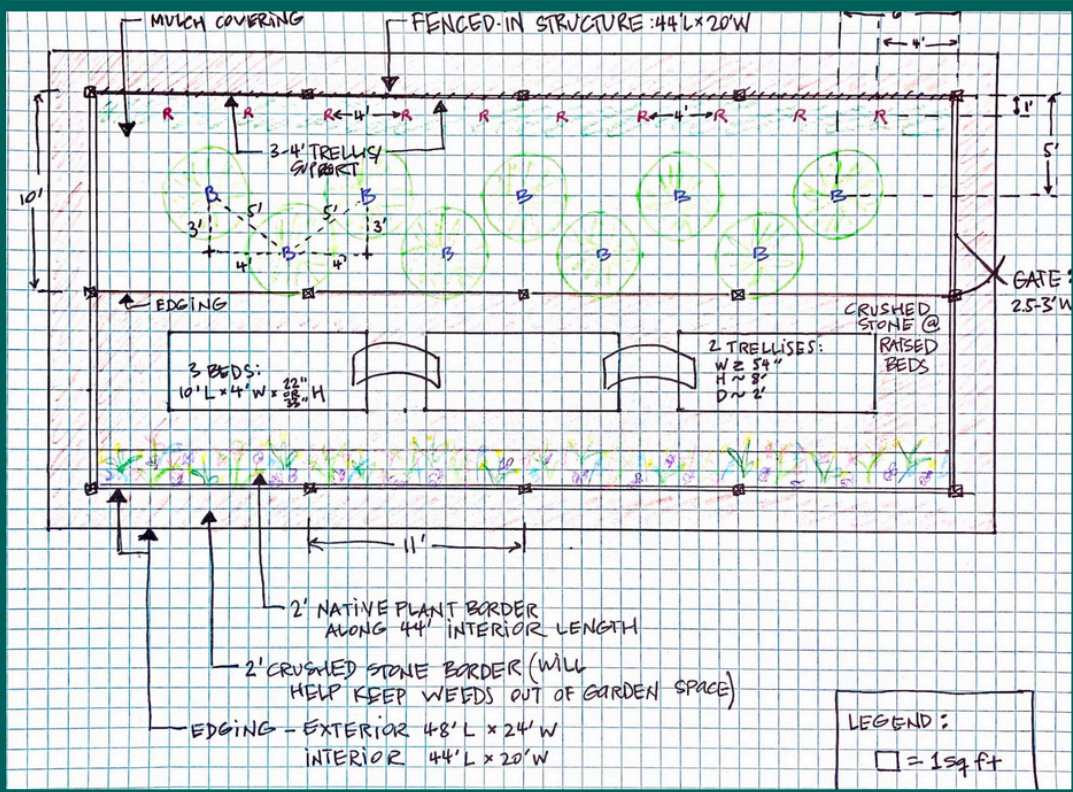 MULCH COVERING
FENCED-IN STRUCTURE: 44'L × 20'W
4'
1'
5'
R R R 4' R R R R 4' R R R
3-4' TRELLIS
SUPPORT
10'
B B B B B
5' 5'
3' 3'
B B B B
4' 4'
EDGING
GATE:
2.5-3'W
CRUSHED
STONE @
RAISED
BEDS
3 BEDS:
10'L × 4'W × 22" OR 33" H
2 TRELLISES:
W ≥ 54"
H ~ 8'
D ~ 2'
11'
2' NATIVE PLANT BORDER
ALONG 44' INTERIOR LENGTH
2' CRUSHED STONE BORDER (WILL
HELP KEEP WEEDS OUT OF GARDEN SPACE)
EDGING - EXTERIOR 48'L × 24'W
INTERIOR 44'L × 20'W
LEGEND:
□ = 1 sq ft